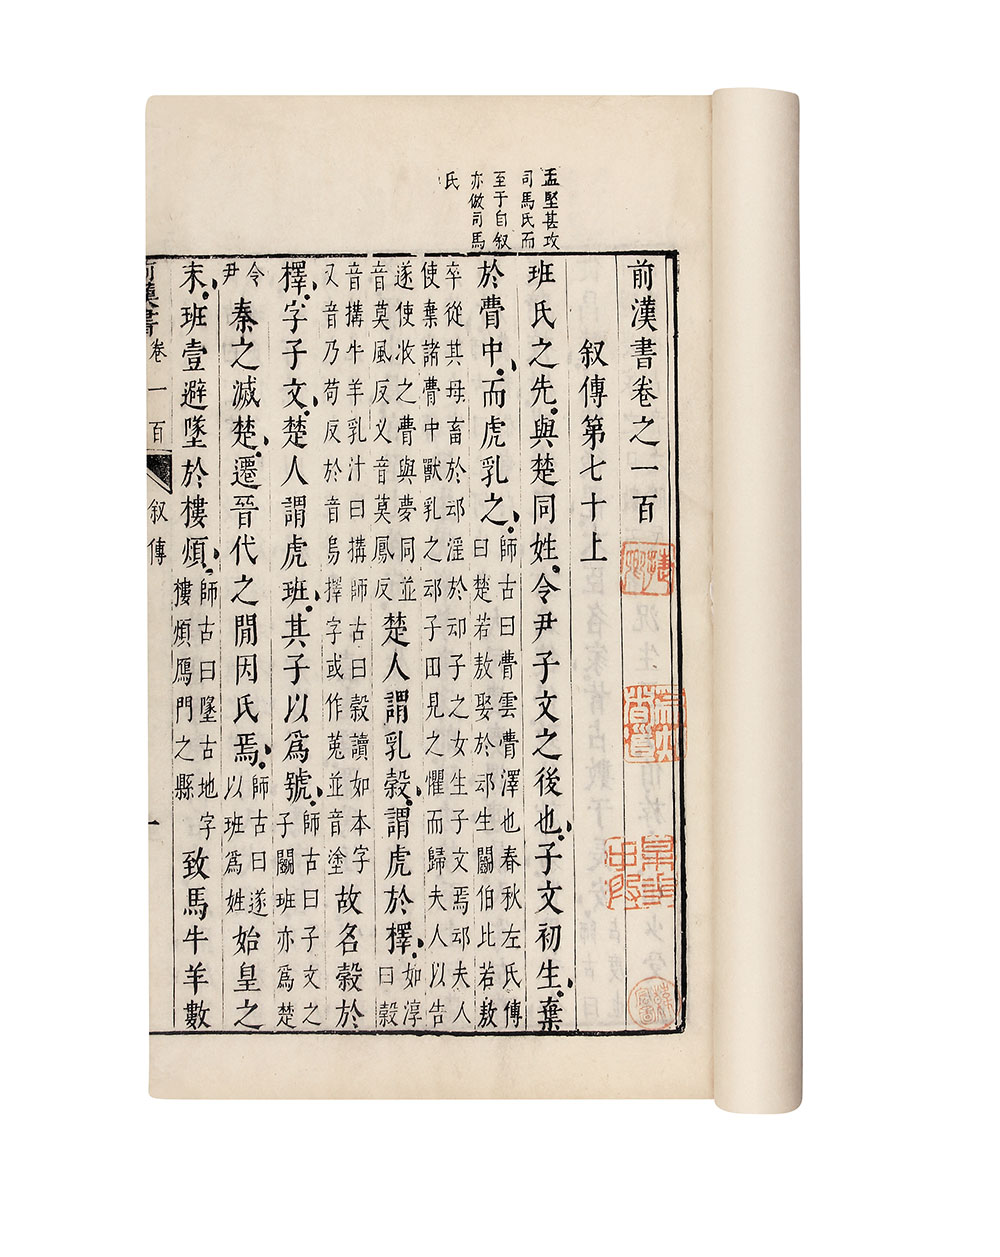 孟堅甚攻
司馬氏而
至于自叙
亦倣司馬
氏
前漢書卷之一百
叙傳第七十上
班氏之先與楚同姓令尹子文之後也子文初生棄
於瞢中而虎乳之師古曰瞢雲瞢澤也春秋左氏傳曰楚若敖娶於䢵生鬭伯比若敖
卒從其母畜於䢵淫於䢵子之女生子文焉䢵夫人使棄諸瞢中獸乳之䢵子田見之懼而歸夫人以告
遂使收之瞢與夢同並音莫風反又音莫鳳反楚人謂乳穀謂虎於檡如淳曰穀
音搆牛羊乳汁曰搆師古曰穀讀如本字又音乃苟反於音烏擇字或作菟並音塗故名穀於
檡字子文楚人謂虎班其子以爲號師古曰子文之子鬭班亦爲楚
令尹秦之滅楚遷晉代之閒因氏焉師古曰遂以班爲姓始皇之
末班壹避墜於樓煩師古曰墜古地字樓煩鴈門之縣致馬牛羊數
前漢書卷一百 叙傳 一